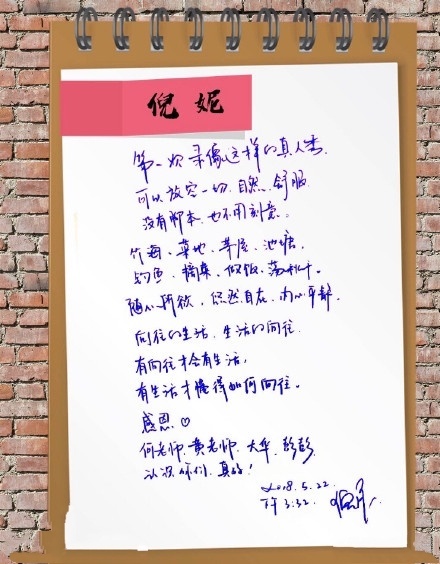 倪妮
第一次录像这样的真人秀,
可以放空一切、自然、舒服,
没有脚本、也不用刻意。
竹海、菜地、茅屋、池塘,
钓鱼、摘菜、做饭、荡秋千。
随心所欲,悠然自在,内心平静。
向往的生活,生活的向往,
有向往才会有生活,
有生活才懂得如何向往。
感恩♡
何老师、黄老师、大华、彭彭
认识你们,真好!
2018.5.22.
下午3:32.